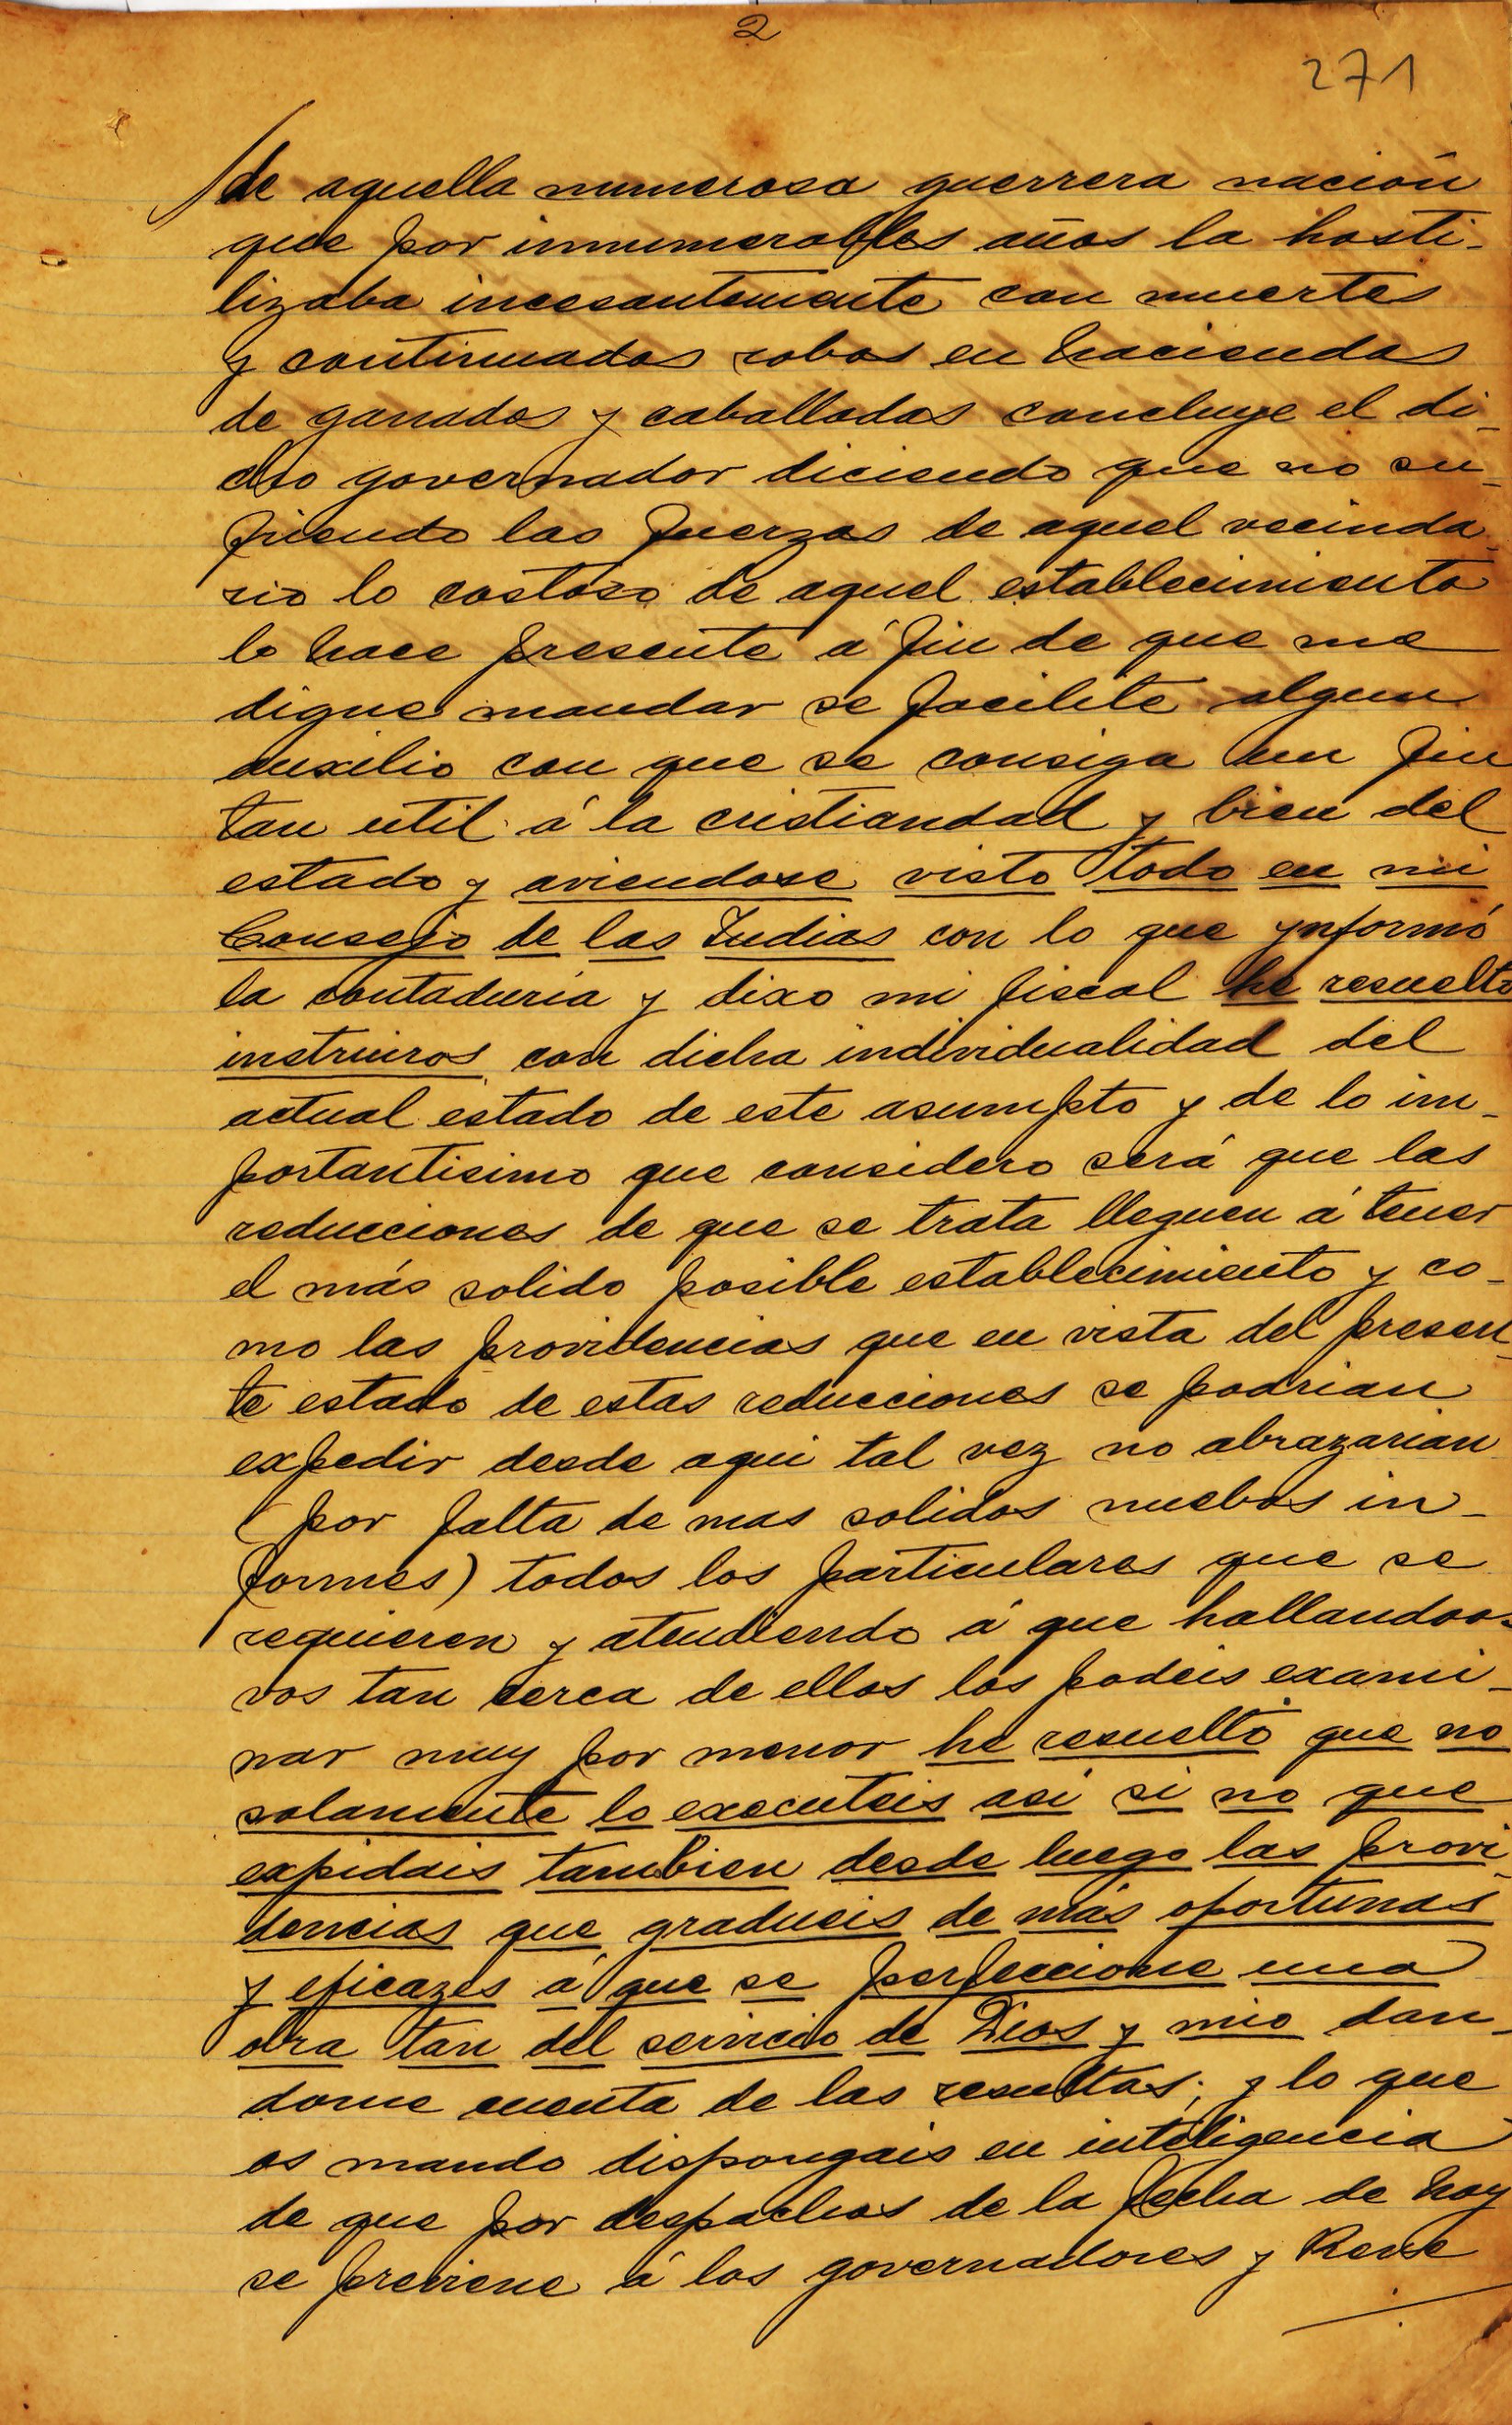 2
271
de aquella numerosa guerrera nación
que por innumerables años la hosti-
lizaba incesantemente con muertes
y continuados robos en haciendas
de ganados y caballadas concluye el di-
cho governador diciendo que no su-
friendo las fuerzas de aquel vecinda-
rio lo costoso de aquel establecimiento
lo hace presente á fin de que me
digne mandar se facilite algun
auxilio con que se consiga un fin
tan util á la cristiandad y bien del
estado y aviendose visto todo en mi
Consejo de las Indias con lo que ynformó
la contaduria y dixo mi fiscal he resuelto
instruiros con dicha individualidad del
actual estado de este asumpto y de lo im-
portantisimo que considero será que las
reducciones de que se trata lleguen á tener
el más solido posible establecimiento y co-
mo las providencias que en vista del presen-
te estado de estas reducciones se podrian
expedir desde aqui tal vez no abrazarian
(por falta de mas solidos nuebos in-
formes) todos los particulares que se
requieren y atendiendo á que hallandoos
vos tan cerca de ellos los podeis exami-
nar muy por menor he resuelto que no
solamente lo executeis asi si no que
expidais tambien desde luego las provi-
dencias que gradueis de más oportunas
y eficazes á que se perfeccione una
obra tan del servicio de Dios y mio dan-
dome cuenta de las resultas; y lo que
os mando dispongais en inteligencia
de que por despachos de la fecha de hoy
se previene á los governadores y Reve